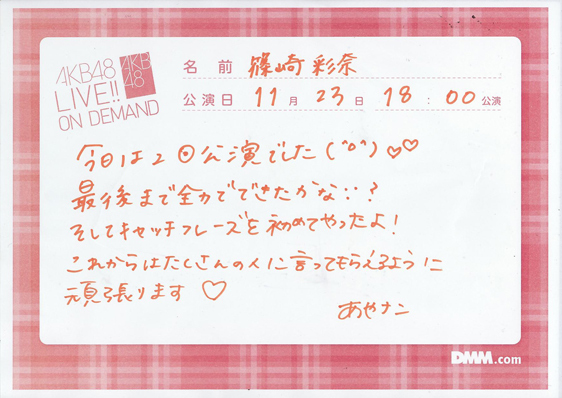 AKB48
LIVE!!
ON DEMAND
AKB
48
名前 篠崎彩奈
公演日 11月23日 18:00公演
今日は2回公演でした(^o^)♡♡
最後まで全力でできたかな∵?
そしてキャッチフレーズを初めてやったよ!
これからはたくさんの人に言ってもらえるように
頑張ります♡
あやナン
DMM.com